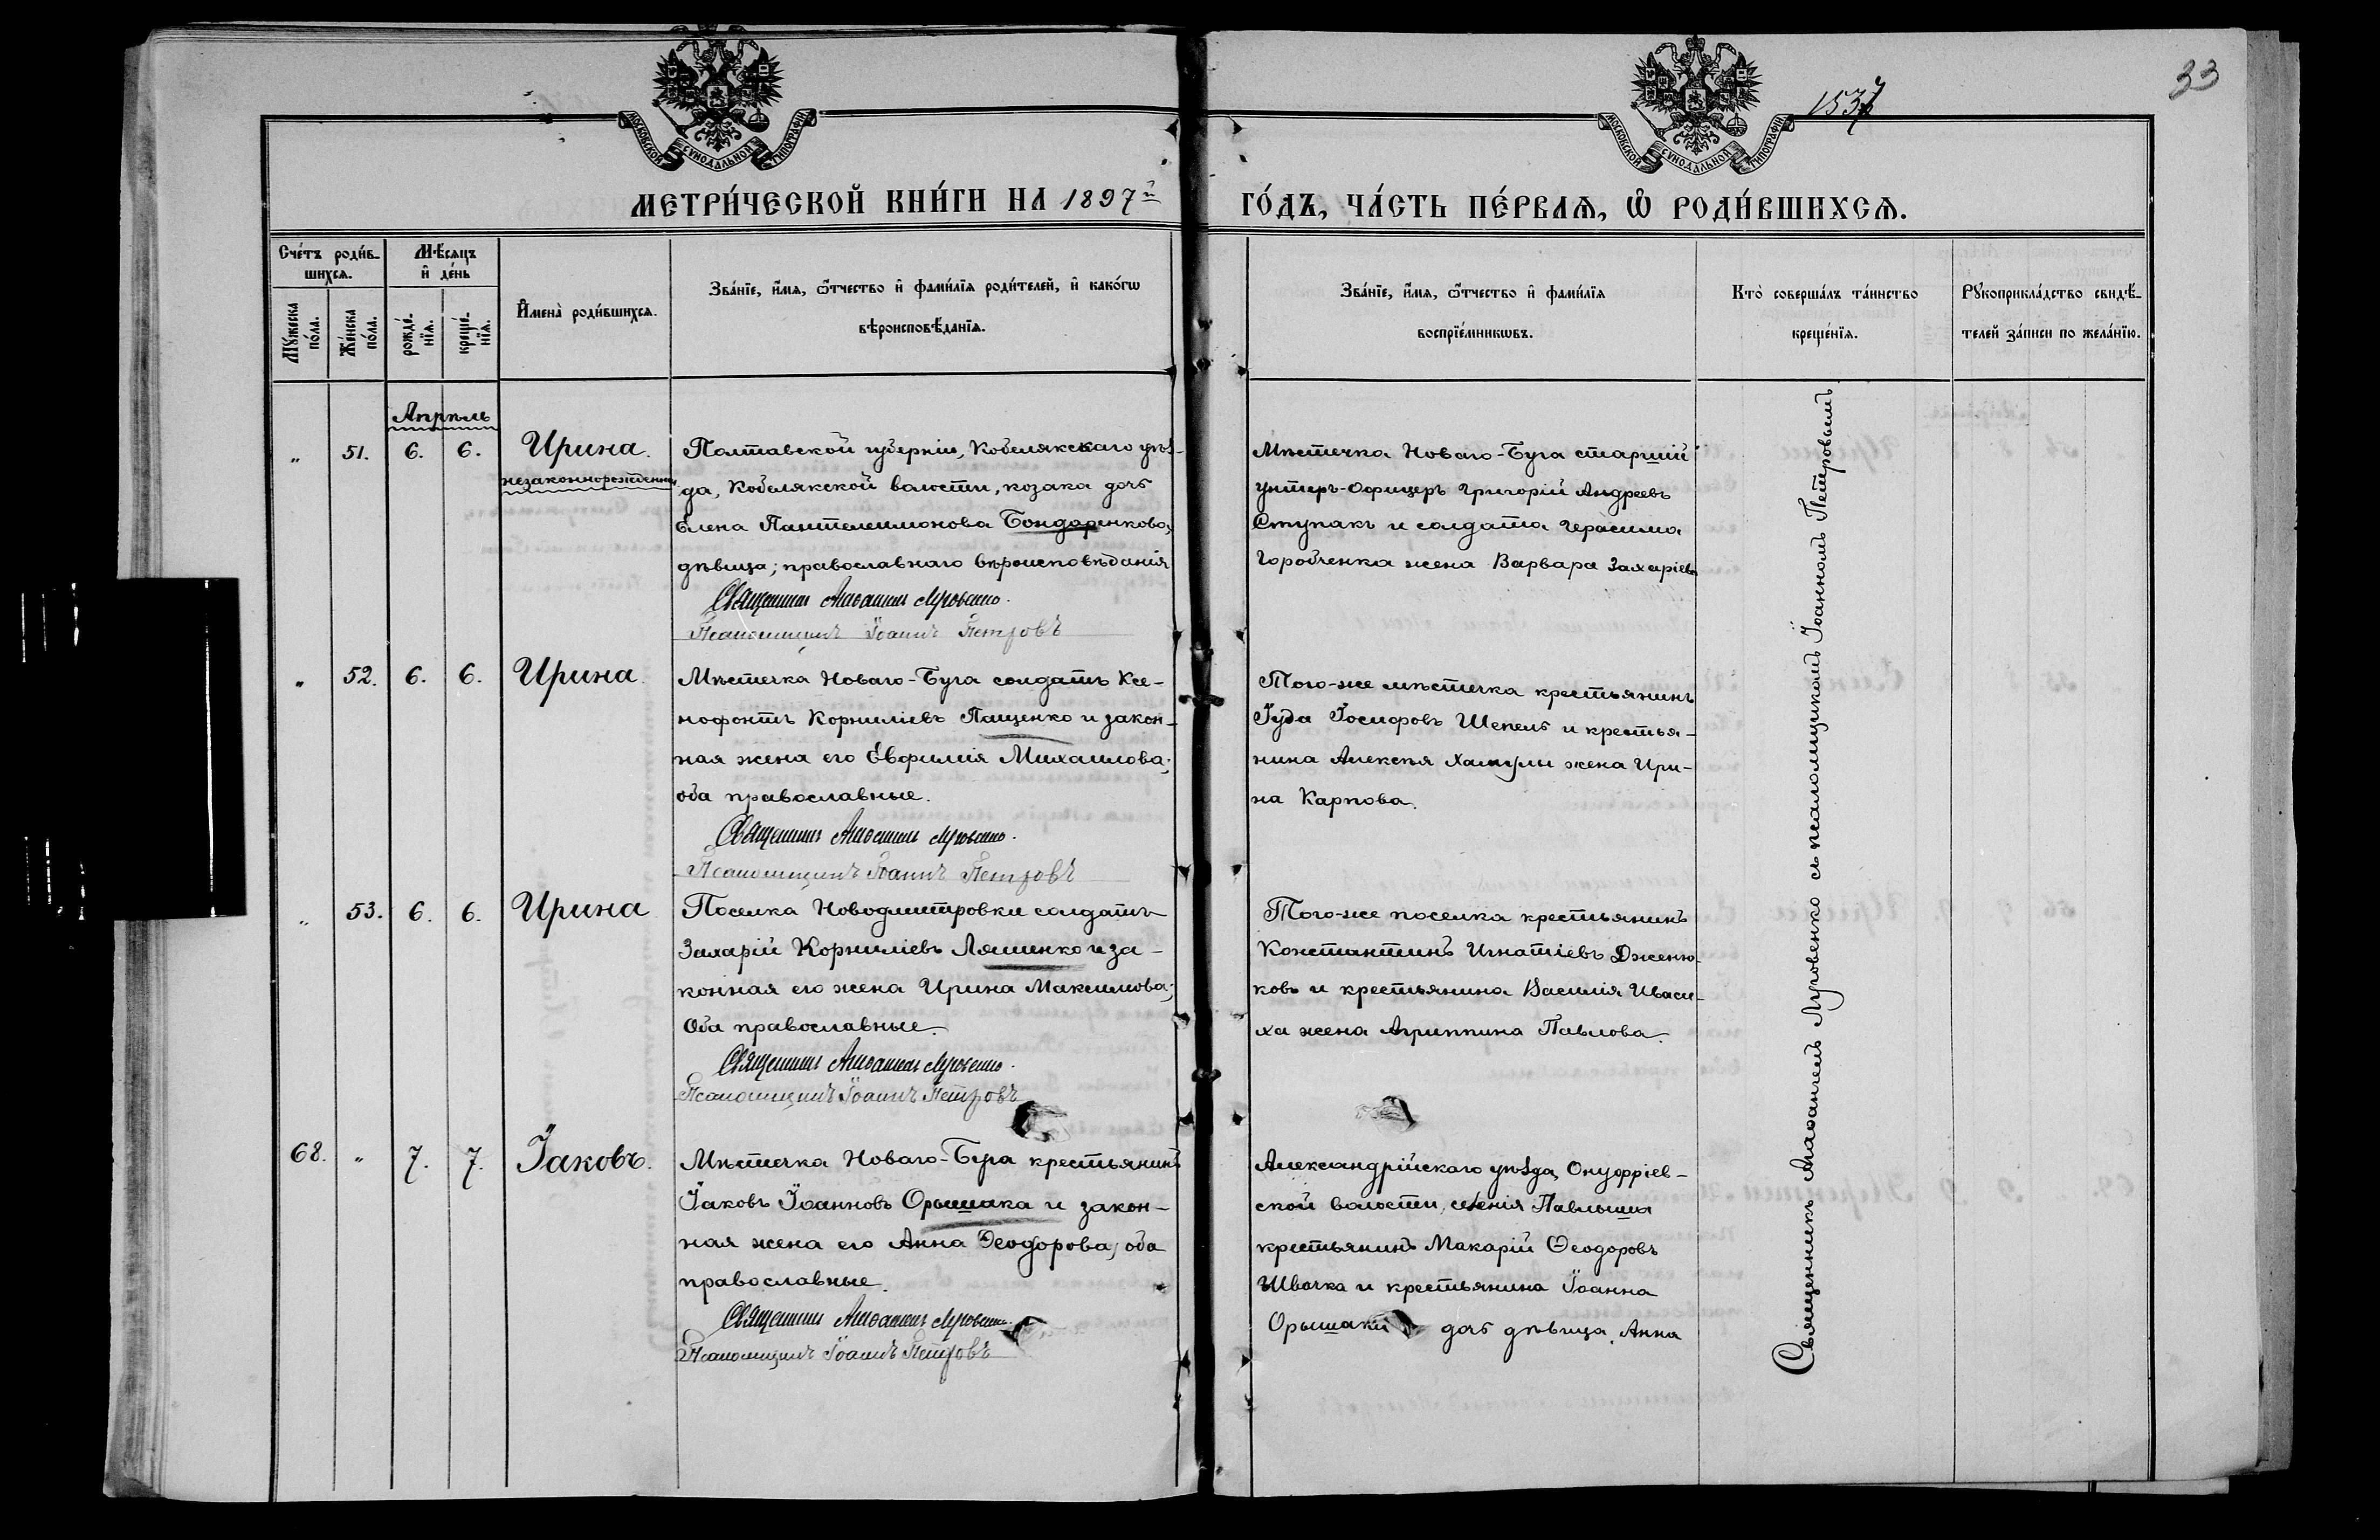 33
1537
МОСКОВСКОЙ СУНОДАЛЬНОЙ ТИПОГРАФІИ
МОСКОВСКОЙ СУНОДАЛЬНОЙ ТИПОГРАФІИ
МЕТРИ́ЧЕСКОЙ КНИ́ГИ НА 1897й ГО́ДЪ, ЧА́СТЬ ПЕ́РВАѦ, Ѡ РОДИ́ВШИХСѦ.
Сче́тъ роди́в-
шихсѧ.
Мꙋжеска по́ла.
Же́нска по́ла.
Мѣ́сѧцъ
и҆ де́нь
рожде́-
нїѧ.
креще́-
нїѧ.
И҆мена̀ роди́вшихсѧ.
Зва́нїе, и҆́мѧ, ѻ҆́тчество и҆ фами́лїѧ роди́телей, и҆ како́гѡ
вѣроисповѣ́данїѧ.
Зва́нїе, и҆́мѧ, ѻ҆́тчество и҆ фами́лїѧ
воспрїе́мникѡвъ.
Кто̀ соверша́лъ та́инство
креще́нїѧ.
Рꙋкоприкла́дство свидѣ́-
телей за́писи по жела́нїю.
Апрѣль
„ 51. 6. 6. Ирина.
незаконнорожденная
Полтавской губерніи, Кобелякскаго уѣз-
да, Кобелякской волости, козака дочь
Елена Пантелеимонова Бондаренкова,
дѣвица; православнаго вѣроисповѣданія
Священникъ Анѳаній Луговенко.
Псаломщикъ Іоаннъ Петровъ
Мѣстечка Новаго-Буга старшій
унтеръ-Офицеръ Григорій Андреевъ
Ступакъ и солдата Герасима
Горобченка жена Варвара Захаріева
„ 52. 6. 6. Ирина.
Мѣстечка Новаго-Буга солдатъ Ксе-
нофонтъ Корниліевъ Пащенко и закон-
ная жена его Евфимія Михаилова;
оба православные.
Священникъ Луговенко.
Псаломщикъ Іоаннъ Петровъ
Того-же мѣстечка крестьянинъ
Іуда Іосифовъ Шепель и крестья-
нина Алексѣя Хамулы жена Ири-
на Карпова.
„ 53. 6. 6. Ирина
Поселка Новодмитровки солдатъ
Захарій Корниліевъ Ляшенко и за-
конная его жена Ирина Максимова;
Оба православные.
Священникъ Луговенко.
Псаломщикъ Іоаннъ Петровъ
Того-же поселка крестьянинъ
Константинъ Игнатіевъ Дженю-
ковъ и крестьянина Василія Иваси-
ха жена Агриппина Павлова.
68. „ 7. 7. Іаковъ.
Мѣстечка Новаго-Буга крестьянинъ
Іаковъ Іоанновъ Орышака и закон-
ная жена его Анна Ѳеодорова; оба
православные.
Священникъ Луговенко.
Псаломщикъ Іоаннъ Петровъ
Александрійскаго уѣзда, Онуфріев-
ской волости, селенія Павлыша
крестьянинъ Макарій Ѳеодоровъ
Швачка и крестьянина Іоанна
Орышаки дочь дѣвица Анна
Священникъ Луговенко съ псаломщикомъ Іоанномъ Петровымъ